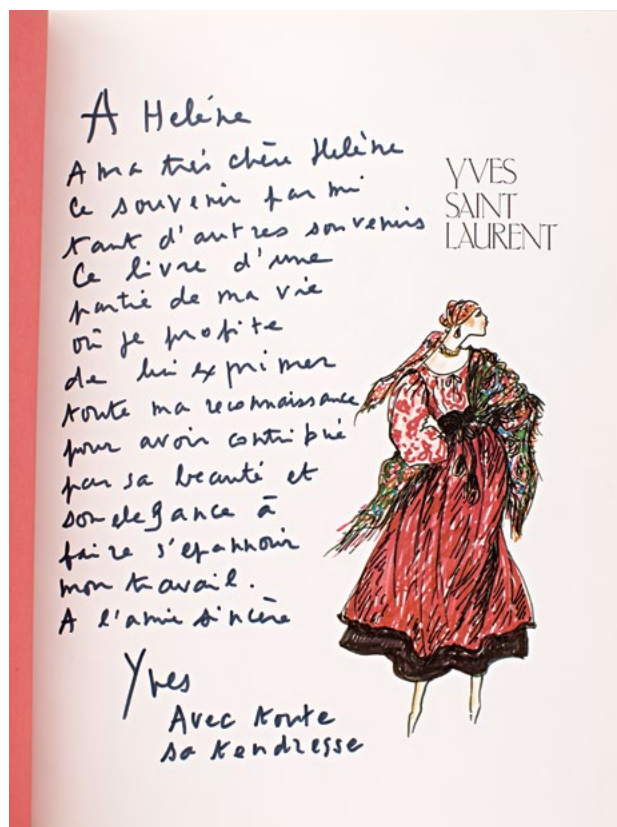 A Helène
A ma très chère Helène
Ce souvenir parmi
tant d'autres souvenirs
Ce livre d'une
partie de ma vie
où je profite
de lui exprimer
toute ma reconnaissance
pour avoir contribué
par sa beauté et
son elegance à
faire s'epannouir
mon travail.
A l'amie sincère
Yves
Avec toute
sa tendresse
YVES
SAINT
LAURENT